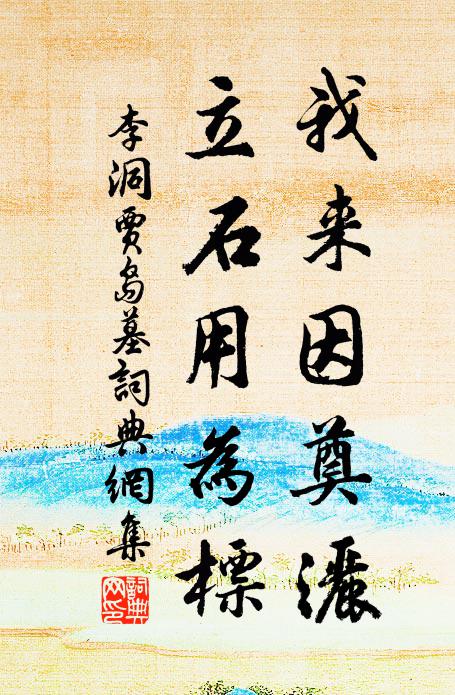 我来因奠灑
立石用為標
李洞賈島墓詞典網集
詞典網印